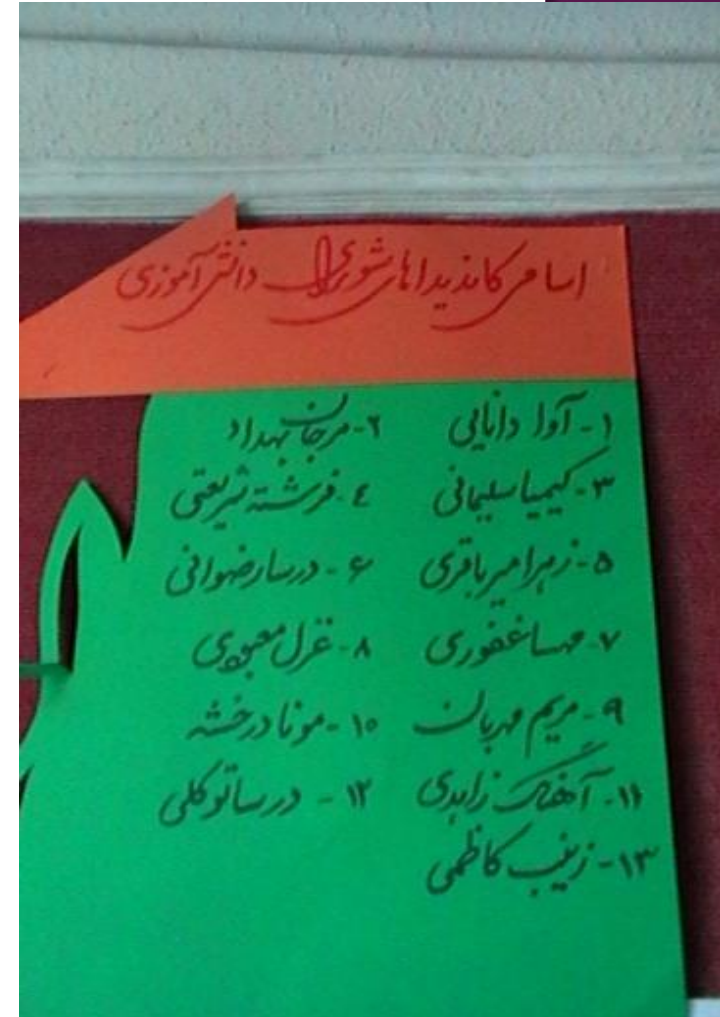 اسامی کاندیداهای شورای دانش آموزی
۱- آوا دانایی ۲- مرجان بهداد
۳- کیمیا سلیمانی ۴- فرشته شریعتی
۵- زهرا میرباقری ۶- درسا رضوانی
۷- مهسا غفوری ۸- غزل
۹- مریم مهربان ۱۰- مونا درخشه
۱۱- آهنگ زاهدی ۱۲- درسا توکلی
۱۳- زینب کاظمی